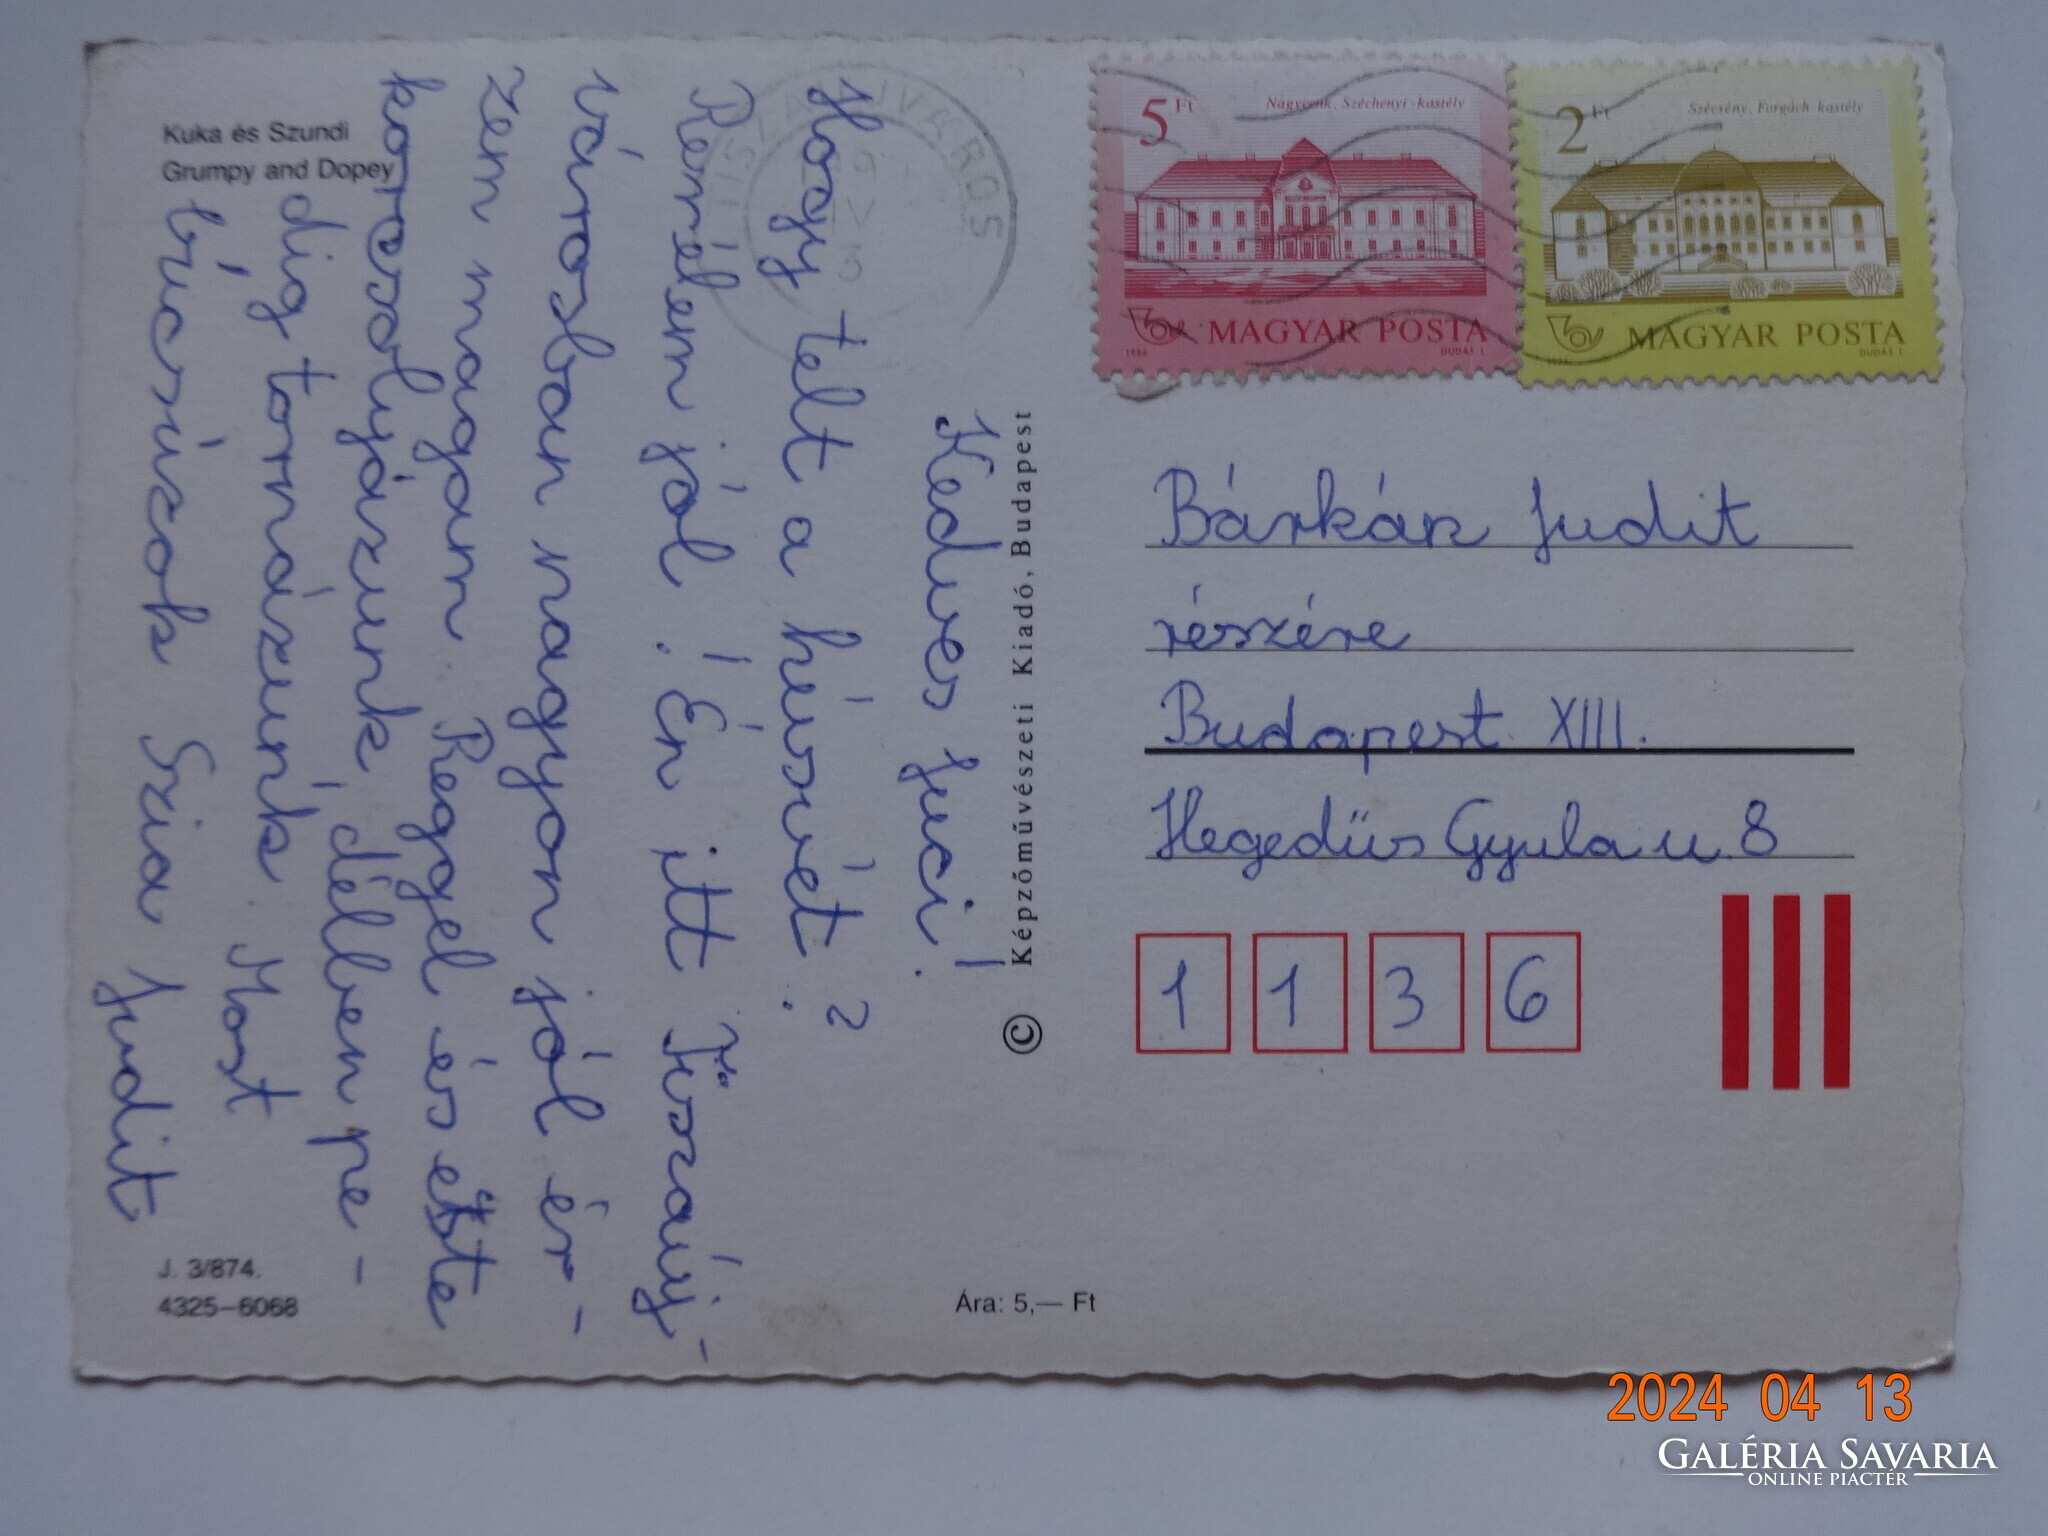 Kuka és Szundi
Grumpy and Dopey
Kedves Juci!
Hogy telt a húsvét?
Remélem jól! Én itt Tiszaúj-
városban nagyon jól ér-
zem magam. Reggel és este
korcsolyázunk, délben pe-
dig tornázunk. Most
búcsúzok Szia Judit
J. 3/874.
4325–6068
Képzőművészeti Kiadó, Budapest
©
Ára: 5,— Ft
TISZAÚJVÁROS
5 Ft
Nagycenk, Széchenyi-kastély
MAGYAR POSTA
1986
DUDÁS L.
2 Ft
Szécsény, Forgách-kastély
MAGYAR POSTA
1986
DUDÁS L.
Bárkán Judit
részére
Budapest XIII.
Hegedűs Gyula u. 8
1136
2024 04 13
GALÉRIA SAVARIA
ONLINE PIACTÉR